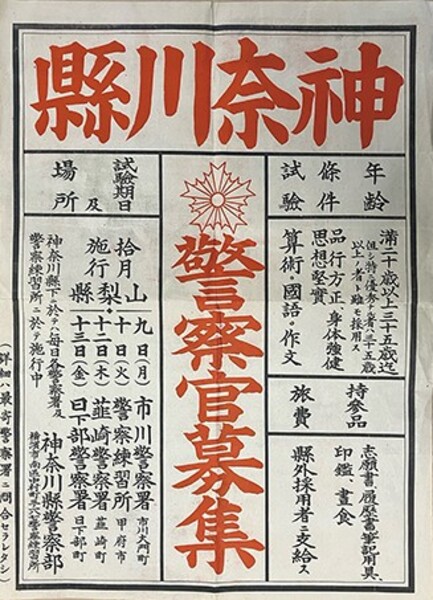 神奈川縣
年齡
條件
試驗
滿二十歲以上三十五歲迄
但シ特ニ優秀ナ者ハ三十五歲
以上ノ者ト雖モ採用ス
品行方正 身体強健
思想堅實
算術。國語。作文
持參品
旅費
志願書、履歷書筆記用具、
印鑑、晝食
縣外採用者ニ支給ス
警察官募集
試驗期日
及
場所
山梨縣
拾月施行
九日(月)市川警察署 市川大門町
十日(火)警察練習所 甲府市
十二日(木)韮崎警察署 韮崎町
十三日(金)日下部警察署 日下部町
神奈川縣下ニ於テハ毎日各警察署及
警察練習所ニ於テ施行中
神奈川縣警察部
横濱市南區中村町 警察練習所
(詳細ハ最寄警察署ニ問合セラレタシ)